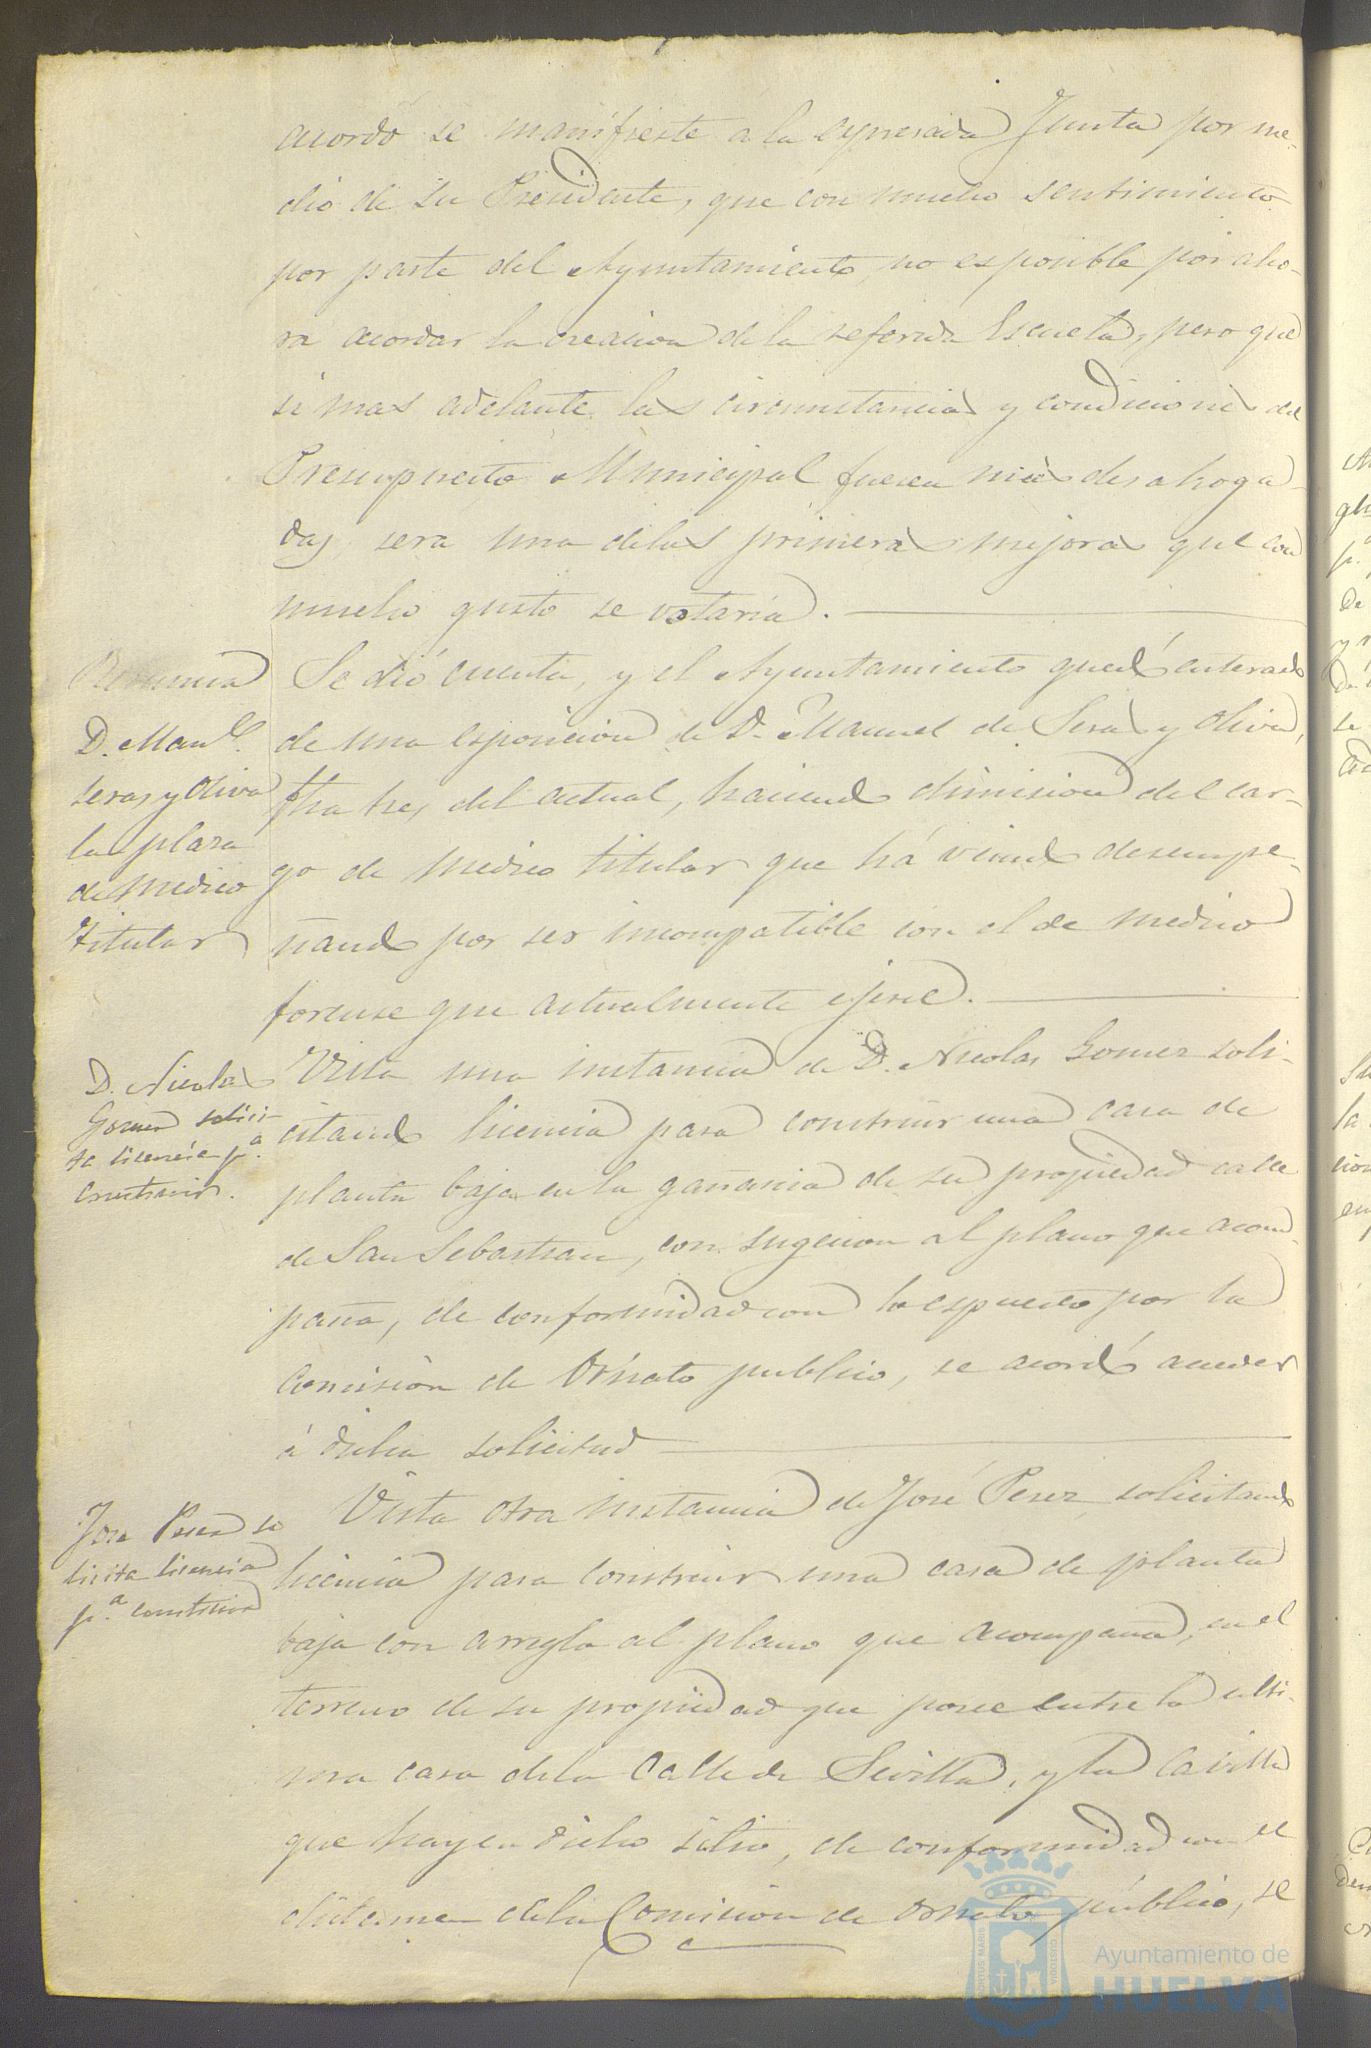 acordó se manifieste a la expresada Junta por me-
dio de su Presidente, que con mucho sentimiento
por parte del Ayuntamiento, no es posible por aho-
ra acordar la creacion de la referida Escuela, pero que
si mas adelante las circunstancias y condiciones del
Presupuesto Municipal fuesen mas desahoga-
das, sera una de las primeras mejoras que con
mucho gusto se votaria.
Renuncia
D. Manl.
Seras y Oliva
la plaza
de medico
titular
Se dió cuenta, y el Ayuntamiento quedó enterado
de una esposicion de D. Manuel de Seras y Oliva,
fha tres del actual, haciendo dimision del car-
go de medico titular que há viendo desempe-
ñando por ser incompatible con el de medico
forense que actualmente ejerce.
D. Nicolas
Gomez solici-
ta licencia p.a
construir.
Vista una instancia de D. Nicolas Gomez soli-
citando licencia para construir una casa de
planta baja en la gañania de su propiedad calle
de San Sebastian, con sugecion al plano que acom-
paña, de conformidad con lo espuesto por la
Comision de Ornato publico, se acordó acceder
á dicha solicitud
Jose Perez so
licita licencia
p.a construir
Vista otra instancia de José Perez, solicitando
licencia para construir una casa de planta
baja con arreglo al plano que acompaña, en el
terreno de su propiedad que posee entre la ulti-
ma casa de la Calle de Sevilla, y la
que hay en dicho sitio, de conformidad con el
dictamen de la Comision de Ornato público, se
Ayuntamiento de
HUELVA